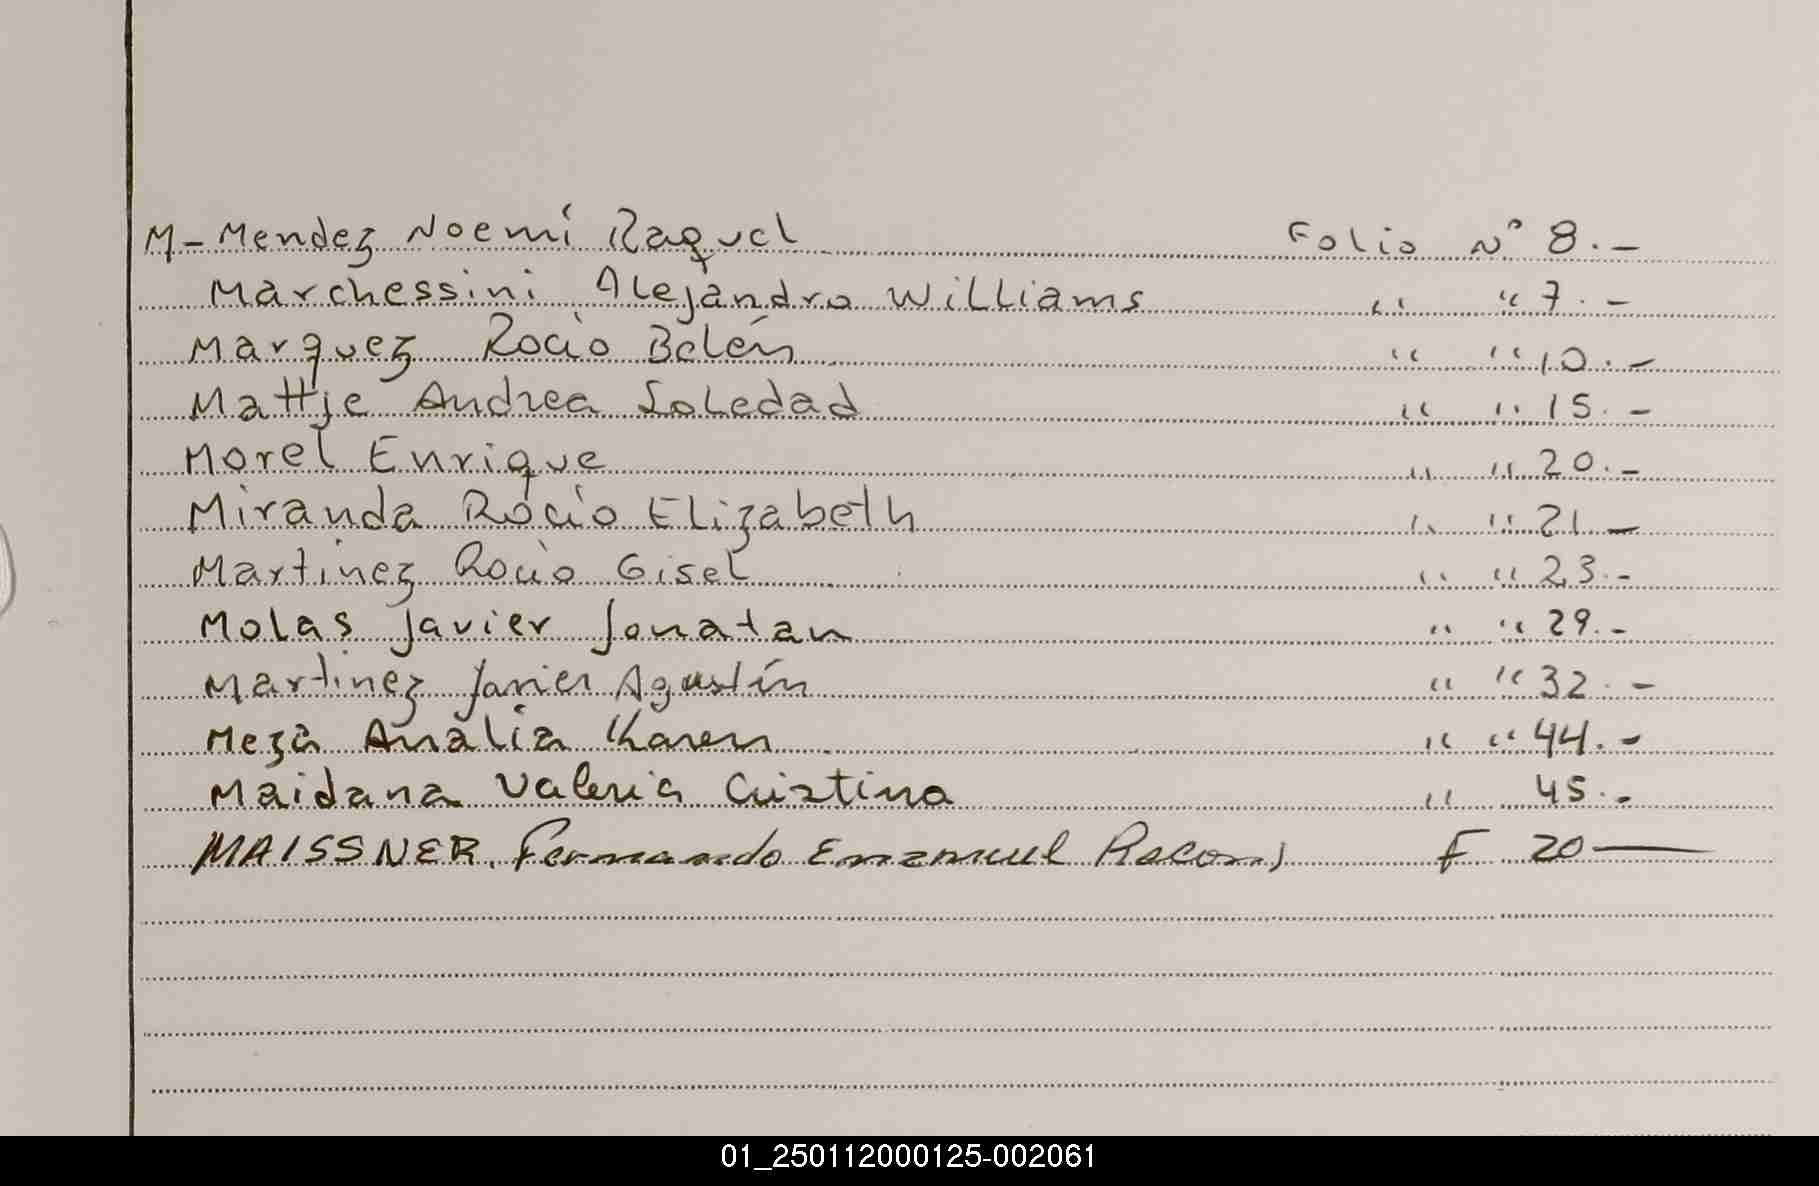 M- Mendez Noemí Raquel Folio N° 8.-
Marchessini Alejandro Williams " " 7.-
Marquez Rocio Belén " " 10.-
Mattje Andrea Soledad " " 15.-
Morel Enrique " " 20.-
Miranda Rocio Elizabeth " " 21.-
Martinez Rocio Gisel " " 23.-
Molas Javier Jonatan " " 29.-
Martinez Javier Agustín " " 32.-
Meza Analia Karen " " 44.-
Maidana Valeria Cristina " 45.-
MAISSNER. Fernando Emanuel F 20—
01_250112000125-002061